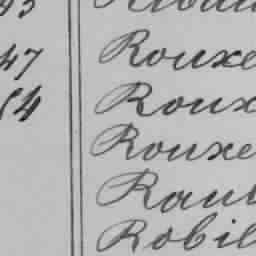 47 Rouxe
54 Roux
Rouxe
Raul
Robil